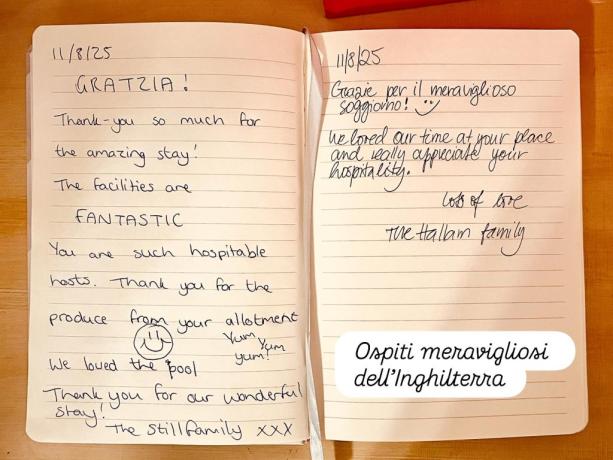 11/8/25
GRATZIA!
Thank-you so much for
the amazing stay!
The facilities are
FANTASTIC
You are such hospitable
hosts. Thank you for the
produce from your allotment
Yum Yum
yum!
We loved the pool
Thank you for our wonderful
stay!
The Still family xxx
11/8/25
Grazie per il meraviglioso
soggiorno!
We loved our time at your place
and really appreciate your
hospitality.
Lots of love
The Hallam family
Ospiti meravigliosi
dell'Inghilterra